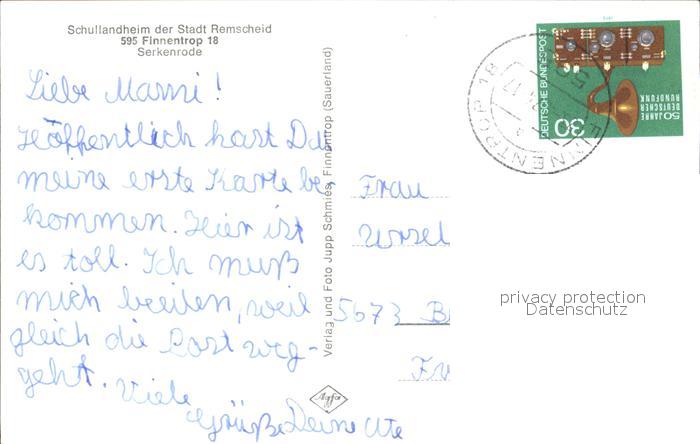 Schullandheim der Stadt Remscheid
595 Finnentrop 18
Serkenrode
Liebe Mammi!
Höffentlich hast Du
meine erste Karte be-
kommen. Hier ist
es toll. Ich muß
mich beeilen, weil
gleich die Post weg-
geht. Viele
Grüße Deine Ute
Verlag und Foto Jupp Schmies, Finnentrop (Sauerland)
Agfa
Frau
Ursel
5673 B
FINNENTROP 18
DEUTSCHE BUNDESPOST
30
50 JAHRE
DEUTSCHER
RUNDFUNK
privacy protection
Datenschutz